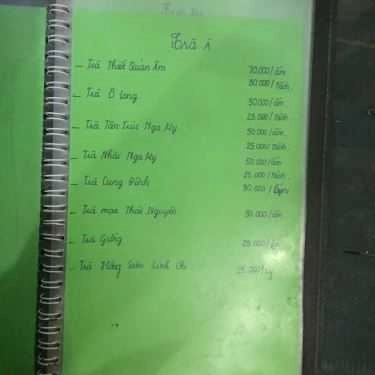 Trà
_ Trà Thiết Quan Âm 70.000/ấm
50.000/tách
_ Trà Ô Long 50.000/ấm
25.000/tách
_ Trà Tân Trúc Nga My 50.000/ấm
25.000/tách
_ Trà Nhài Nga My 50.000/ấm
25.000/tách
_ Trà Cung Đình 30.000/
_ Trà mạn Thái Nguyên 30.000/ấm
_ Trà Gừng 25.000/
_ Trà Hồng Sâm Linh Chi 25.000/ly